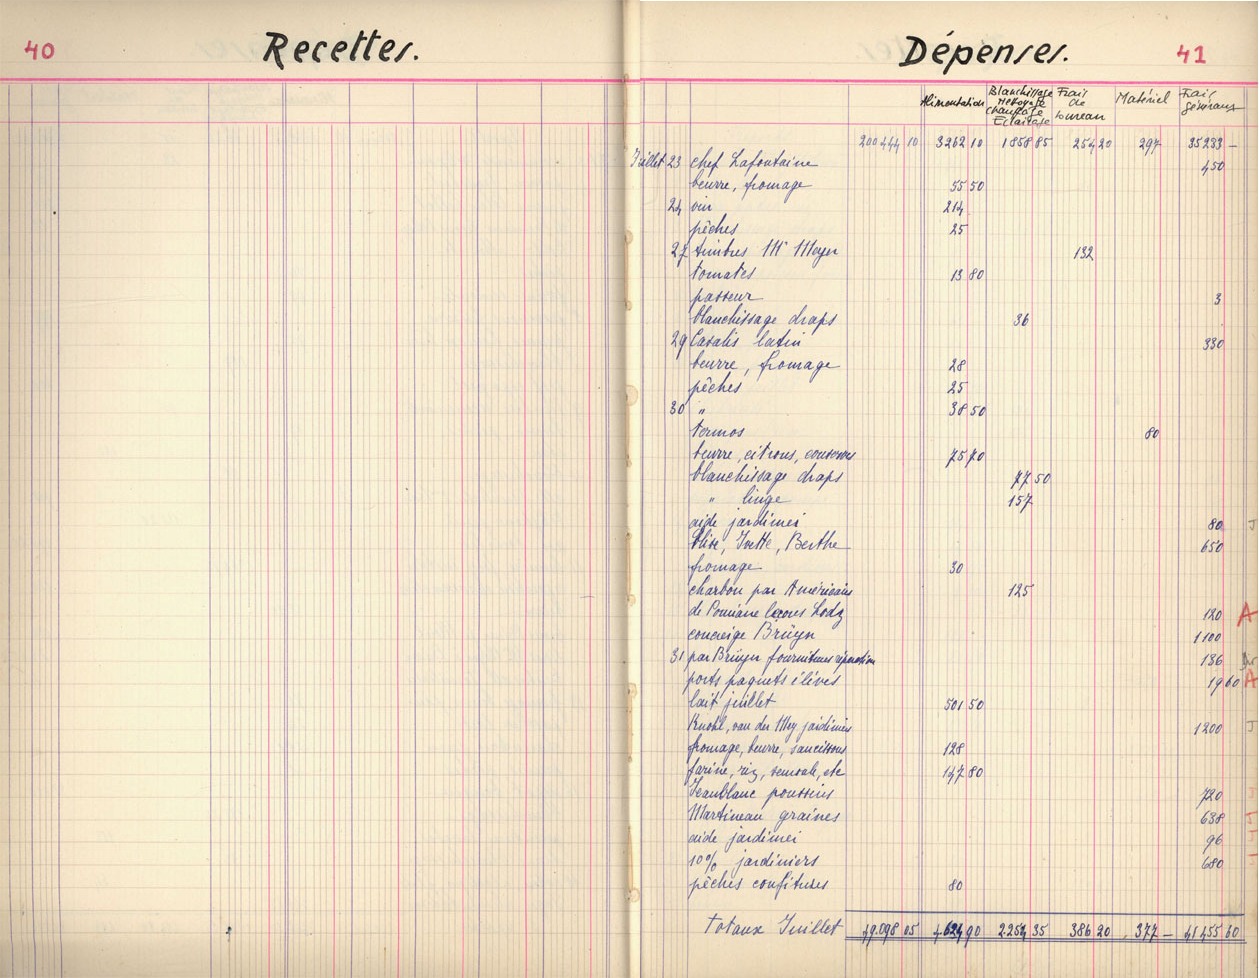 40 Recettes.
Dépenses. 41
Alimentation Blanchissage Nettoyage Chauffage Eclairage Frais de bureau Matériel Frais généraux
200 444 10 3262 10 1858 85 254 20 297 35 233 —
Juillet 23 chef Lafontaine 450
beurre, fromage 55 50
24 vin 214
pêches 25
27 timbres Mr Meyer 132
tomates 13 80
passeur 3
blanchissage draps 36
29 Casalis latin 330
beurre, fromage 28
pêches 25
30 " 38 50
termos 80
beurre, citrons, conserves 75 70
blanchissage draps 77 50
" linge 157
aide jardinei 80 J
Elise, Yvette, Berthe 650
fromage 30
charbon par Américains 125
de Pomiane leçons Lodz 120 A
concierge Brüyn 1100
31 par Brüyn fournitures réparation 136
ports paquets élèves 19 60 A
lait juillet 501 50
van der Mey jardinier 1200 J
fromage, beurre, saucissons 128
farine, riz, semoule, etc 147 80
Jeanblanc poussins 720 J
Martineau graines 638 J
aide jardinei 96
10% jardiniers 680
pêches confitures 80
Totaux Juillet 49.098 05 4.624 90 2.254 35 386 20 377 — 41 455 60